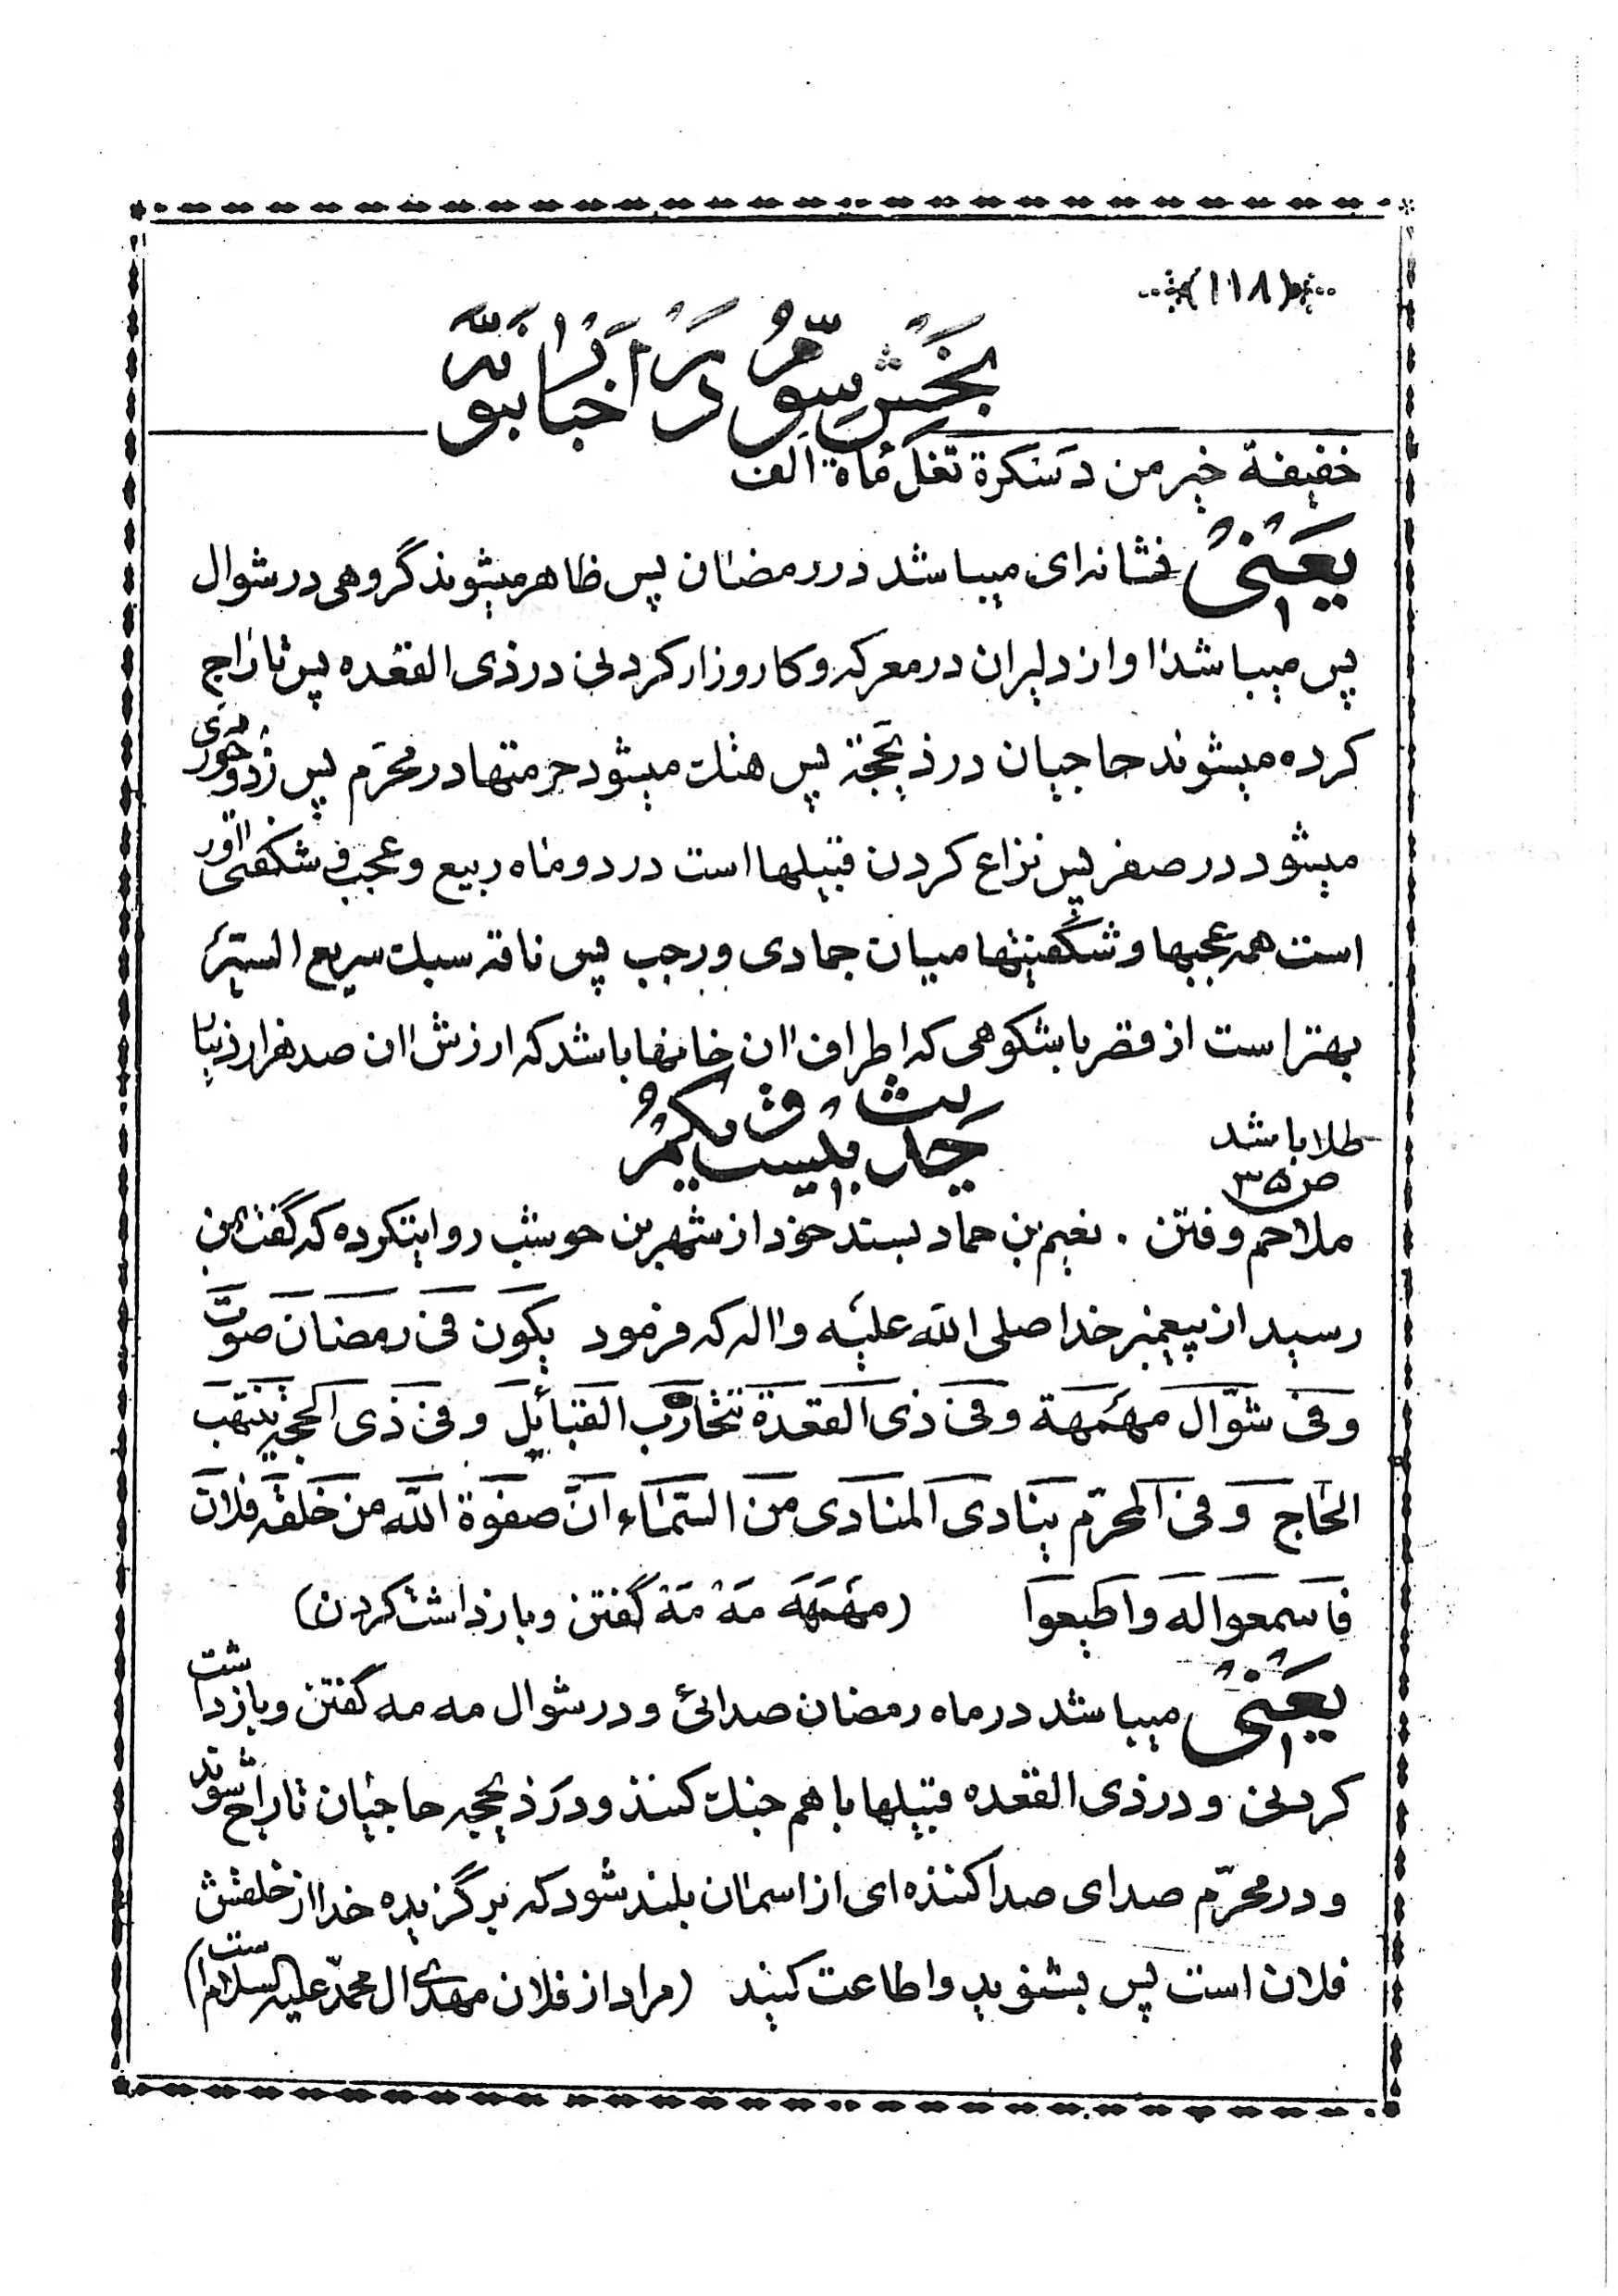 (۱۱۸)
بخش سوّم در اخبار نبویّه
خفیفة خیر من دَسْکرة تغلّ مأة الف
یعنی نشانه‌ای میباشد در رمضان پس ظاهر میشوند گروهی در شوال
پس میباشد اواز دلیران در معرکه و کار و زار کردنی در ذی القعده پس تاراج
کرده میشوند حاجیان در ذیحجّة پس هتك میشود حرمتها در محرّم پس زد و خوردی
میشود در صفر پس نزاع کردن قبیلها است در دو ماه ربیع و عجب و شگفتی اور
است همه عجبها و شگفتیها میان جمادی و رجب پس ناقه سبك سریع السیّر
بهتر است از قصر با شکوهی که اطراف ان خانها باشد که ارزش ان صد هزار دینار
طلا باشد
حدیث بیست و یکم
ص ۳۵
ملاحم و فتن . نعیم بن حماد بسند خود از شهر بن حوشب روایتکرده که گفت بمن
رسید از پیغمبر خدا صلی الله علیه و اله که فرمود یکون فی رمضان صوت
و فی شوّال مهمهة و فی ذی القعدة تتحارب القبائل و فی ذی الحجه ینتهب
الحاج و فی المحرّم ینادی المنادی من السّماء انّ صفوة الله من خلقه فلان
فاسمعوا له و اطیعوا (مهمهه مَهْ مَهْ گفتن و بازداشت کردن)
یعنی میباشد در ماه رمضان صدائی و در شوال مه مه گفتن و بازداشت
کردنی و در ذی القعده قبیلها با هم جنك کنند و در ذیحجه حاجیان تاراج شوند
و در محرّم صدای صدا کننده‌ای از اسمان بلند شود که برگزیده خدا از خلقش
فلان است پس بشنوید و اطاعت کنید (مراد از فلان مهدی ال محمّد علیه السلام است)